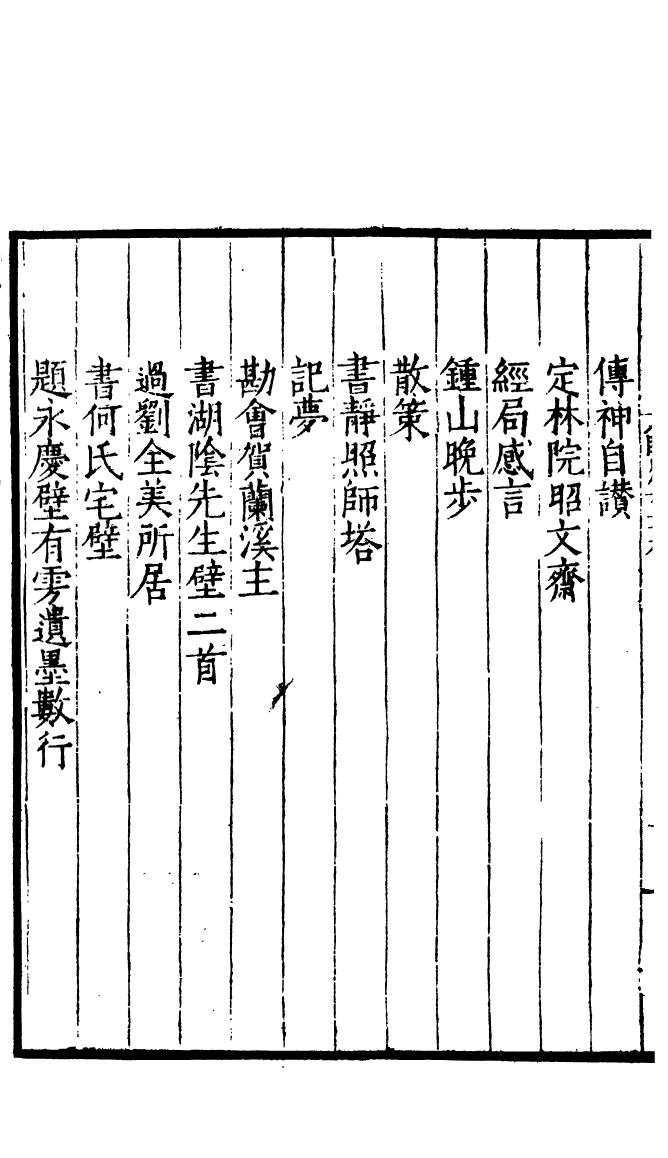 傳神自讃
定林院昭文齋
經局感言
鍾山晚步
散策
書靜照師塔
記夢
勘會賀蘭溪主
書湖陰先生壁二首
過劉全美所居
書何氏宅壁
題永慶壁有雱遺墨數行